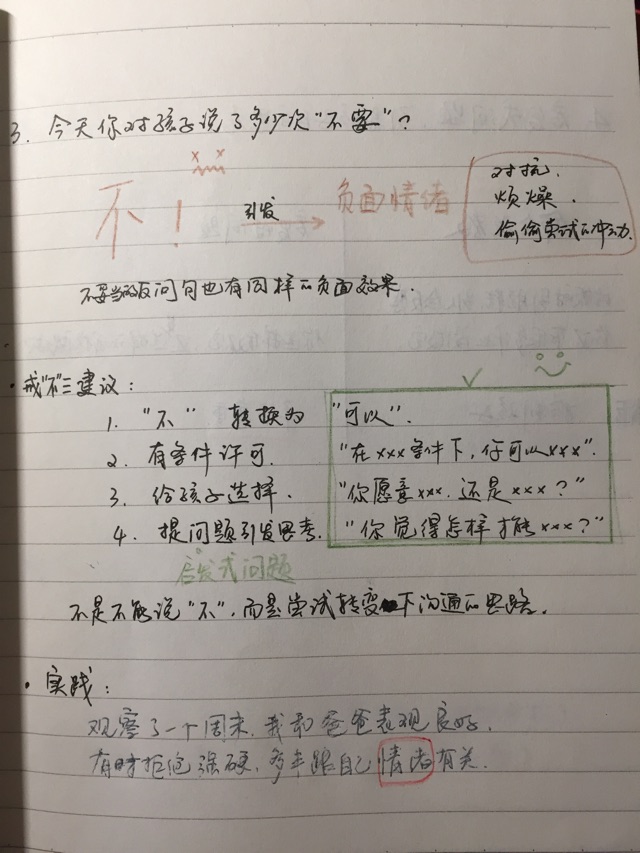 3. 今天你对孩子说了多少次"不要"?
不! 引发 负面情绪
对抗.
烦燥.
偷偷尝试的冲动.
不妥当的反问句也有同样的负面效果.
·戒"不"三建议:
1. "不" 转换为 "可以".
2. 有条件许可. "在×××条件下,你可以×××".
3. 给孩子选择. "你愿意×××.还是×××?"
4. 提问题引发思考. "你觉得怎样才能×××?"
启发式问题
不是不能说"不",而是尝试转变下沟通的思路.
·实践:
观察了一个周末,我和爸爸表现良好.
有时拒绝强硬,多半跟自己情绪有关.